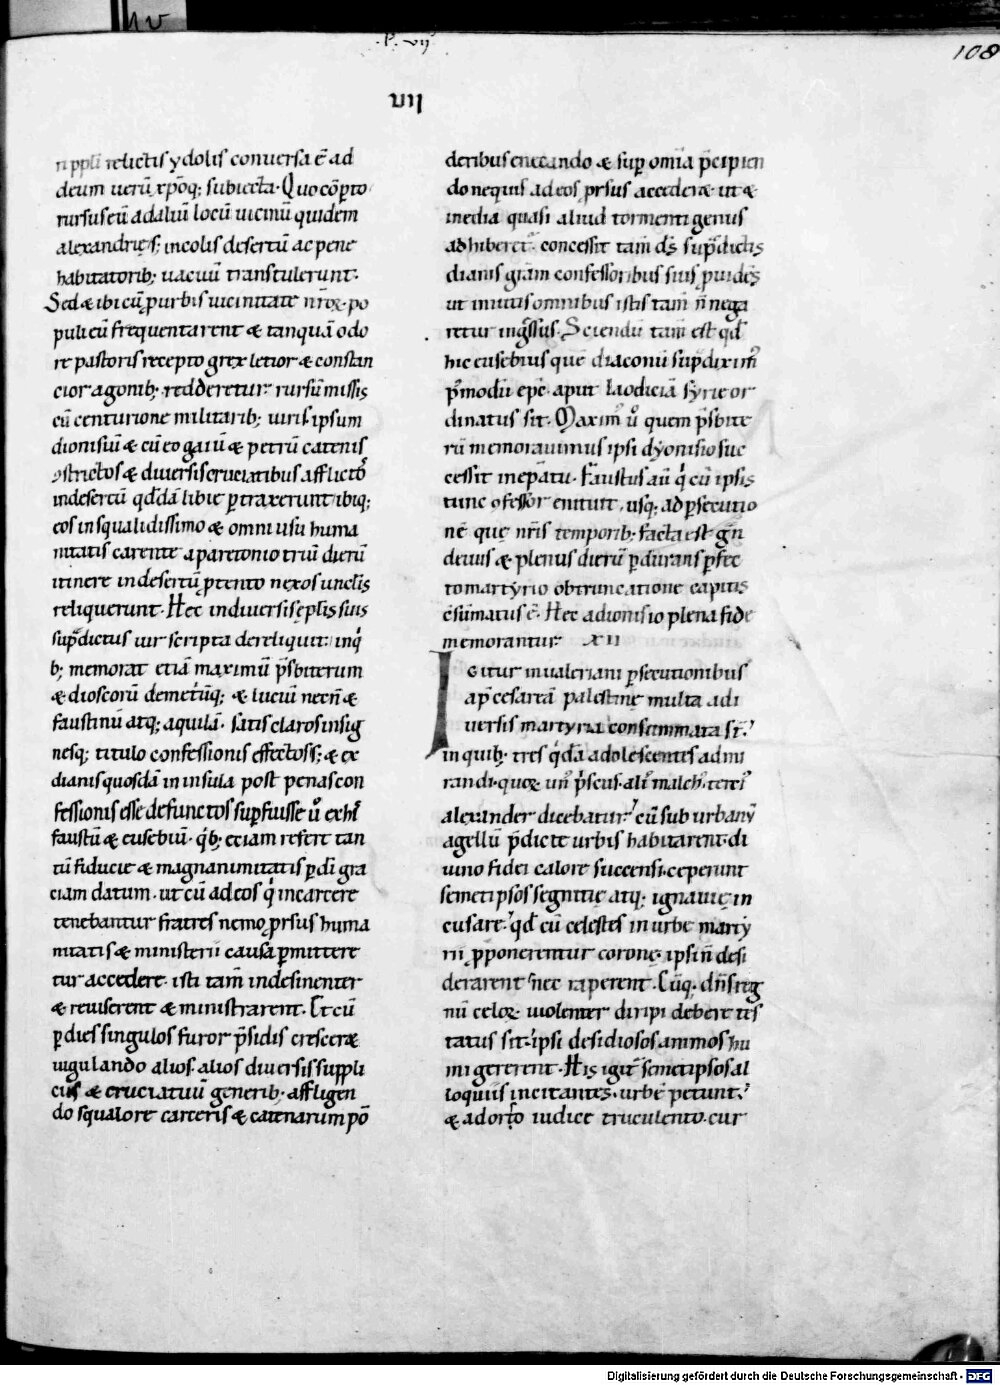 .P. vij
108
VII
ri ppłi relictis ydolis conuersa ē ad
deum uerū xp̄oq; subiecta. Quo cōpto
rursus eū ad aliū locū uicinū quidem
alexandrię s; incolis desertū ac pene
habitatorib; uacuū transtulerunt.
Sed & ibi cū p urbis uicinitate nr̄oꝝ po
puli eū frequentarent & tanquā odo
re pastoris recepto grex letior & constan
cior agonib; redderetur. rursū missis
cū centurione militarib; uiris. ipsum
dionisiū & cū eo gaiū & petrū catenis
ꝯstrictos & diuersis cruciatibus afflictos
in desertū qđdā libie ptraxerunt ibiq;
eos in squalidissimo & omni usu huma
nitatis carente a paretonio triū dierū
itinere in desertū ptento nexos uinclis
reliquerunt. Hec in diuersis eplis suis
supdictus uir scripta dereliquit. in q
b; memorat etiā maximū psbiterum
& dioscorū demetriūq; & luciū necn̄ &
faustinū atq; aquilā. satis claros insig
nesq; titulo confessionis effectos s; & ex
dianis quosdā in insula post penas con
fessionis esse defunctos supfuisse ů exhis
faustū & eusebiū. qb; eciam refert tan
tū fiducie & magnanimitatis p di gra
ciam datum. ut cū ad eos q in carcere
tenebantur fratres nemo prsus huma
nitatis & ministerii causa pmittere
tur accedere. isti tam̄ indesinenter
& reuiserent & ministrarent. Et cū
p dies singulos furor psidis crescer&
iugulando alios. alios diuersis suppli
ciis & cruciatuū generib; affligen
do squalore carceris & catenarum pō
deribus enecando & sup omīa pcipien
do nequis ad eos prsus acceder& ut &
inedia quasi aliud tormenti genus
adhiberet. concessit tam̄ ds̄ supdictis
dianis grām confessoribus suis puidēs
ut inuitis omnibus istis tam̄ n̄ nega
retur ingssus. Sciendū tam̄ est qđ
hic eusebius quē diaconū supdixim
pmodū epc̄ aput laodiciā syrie or
dinatus sit. Maxim ů quem psbite
rū memorauimus ipsi dyonisio suc
cessit in epatu. Faustus aū q cū ipsis
tunc ꝯfessor enituit. usq; ad psecutio
nē que nr̄is temporib; facta est gn̄
deuis & plenus dierū pdurans pfec
to martyrio obtruncatione capitis
ꝯsūmatus ē. Hec a dionisio plena fide
memorantur. XII
Igitur in ualeriani psecutionibus
ap cesareā palestine multa a di
uersis martyria consummata st.
in quib; tres qdā adolescentes admi
randi. quoꝝ un pscus. ali malch. terci
alexander dicebatur. cū suburbany
agellū pdicte urbis habitarent. di
uino fidei calore succensi. ceperunt
semetipsos segnitię atq; ignauię in
cusare. qđ cū celestes in urbe marty
rii pponerentur corone. ipsi n̄ desi
derarent nec raperent. Cūq; dn̄s reg
nū celoꝝ uiolenter diripi debere tes
tatus sit. ipsi desidiosos animos hu
mi gererent. His igit semetipsos al
loquiis incitantes. urbē petunt.
& adorto iudice truculento. cur
Digitalisierung gefördert durch die Deutsche Forschungsgemeinschaft - DFG